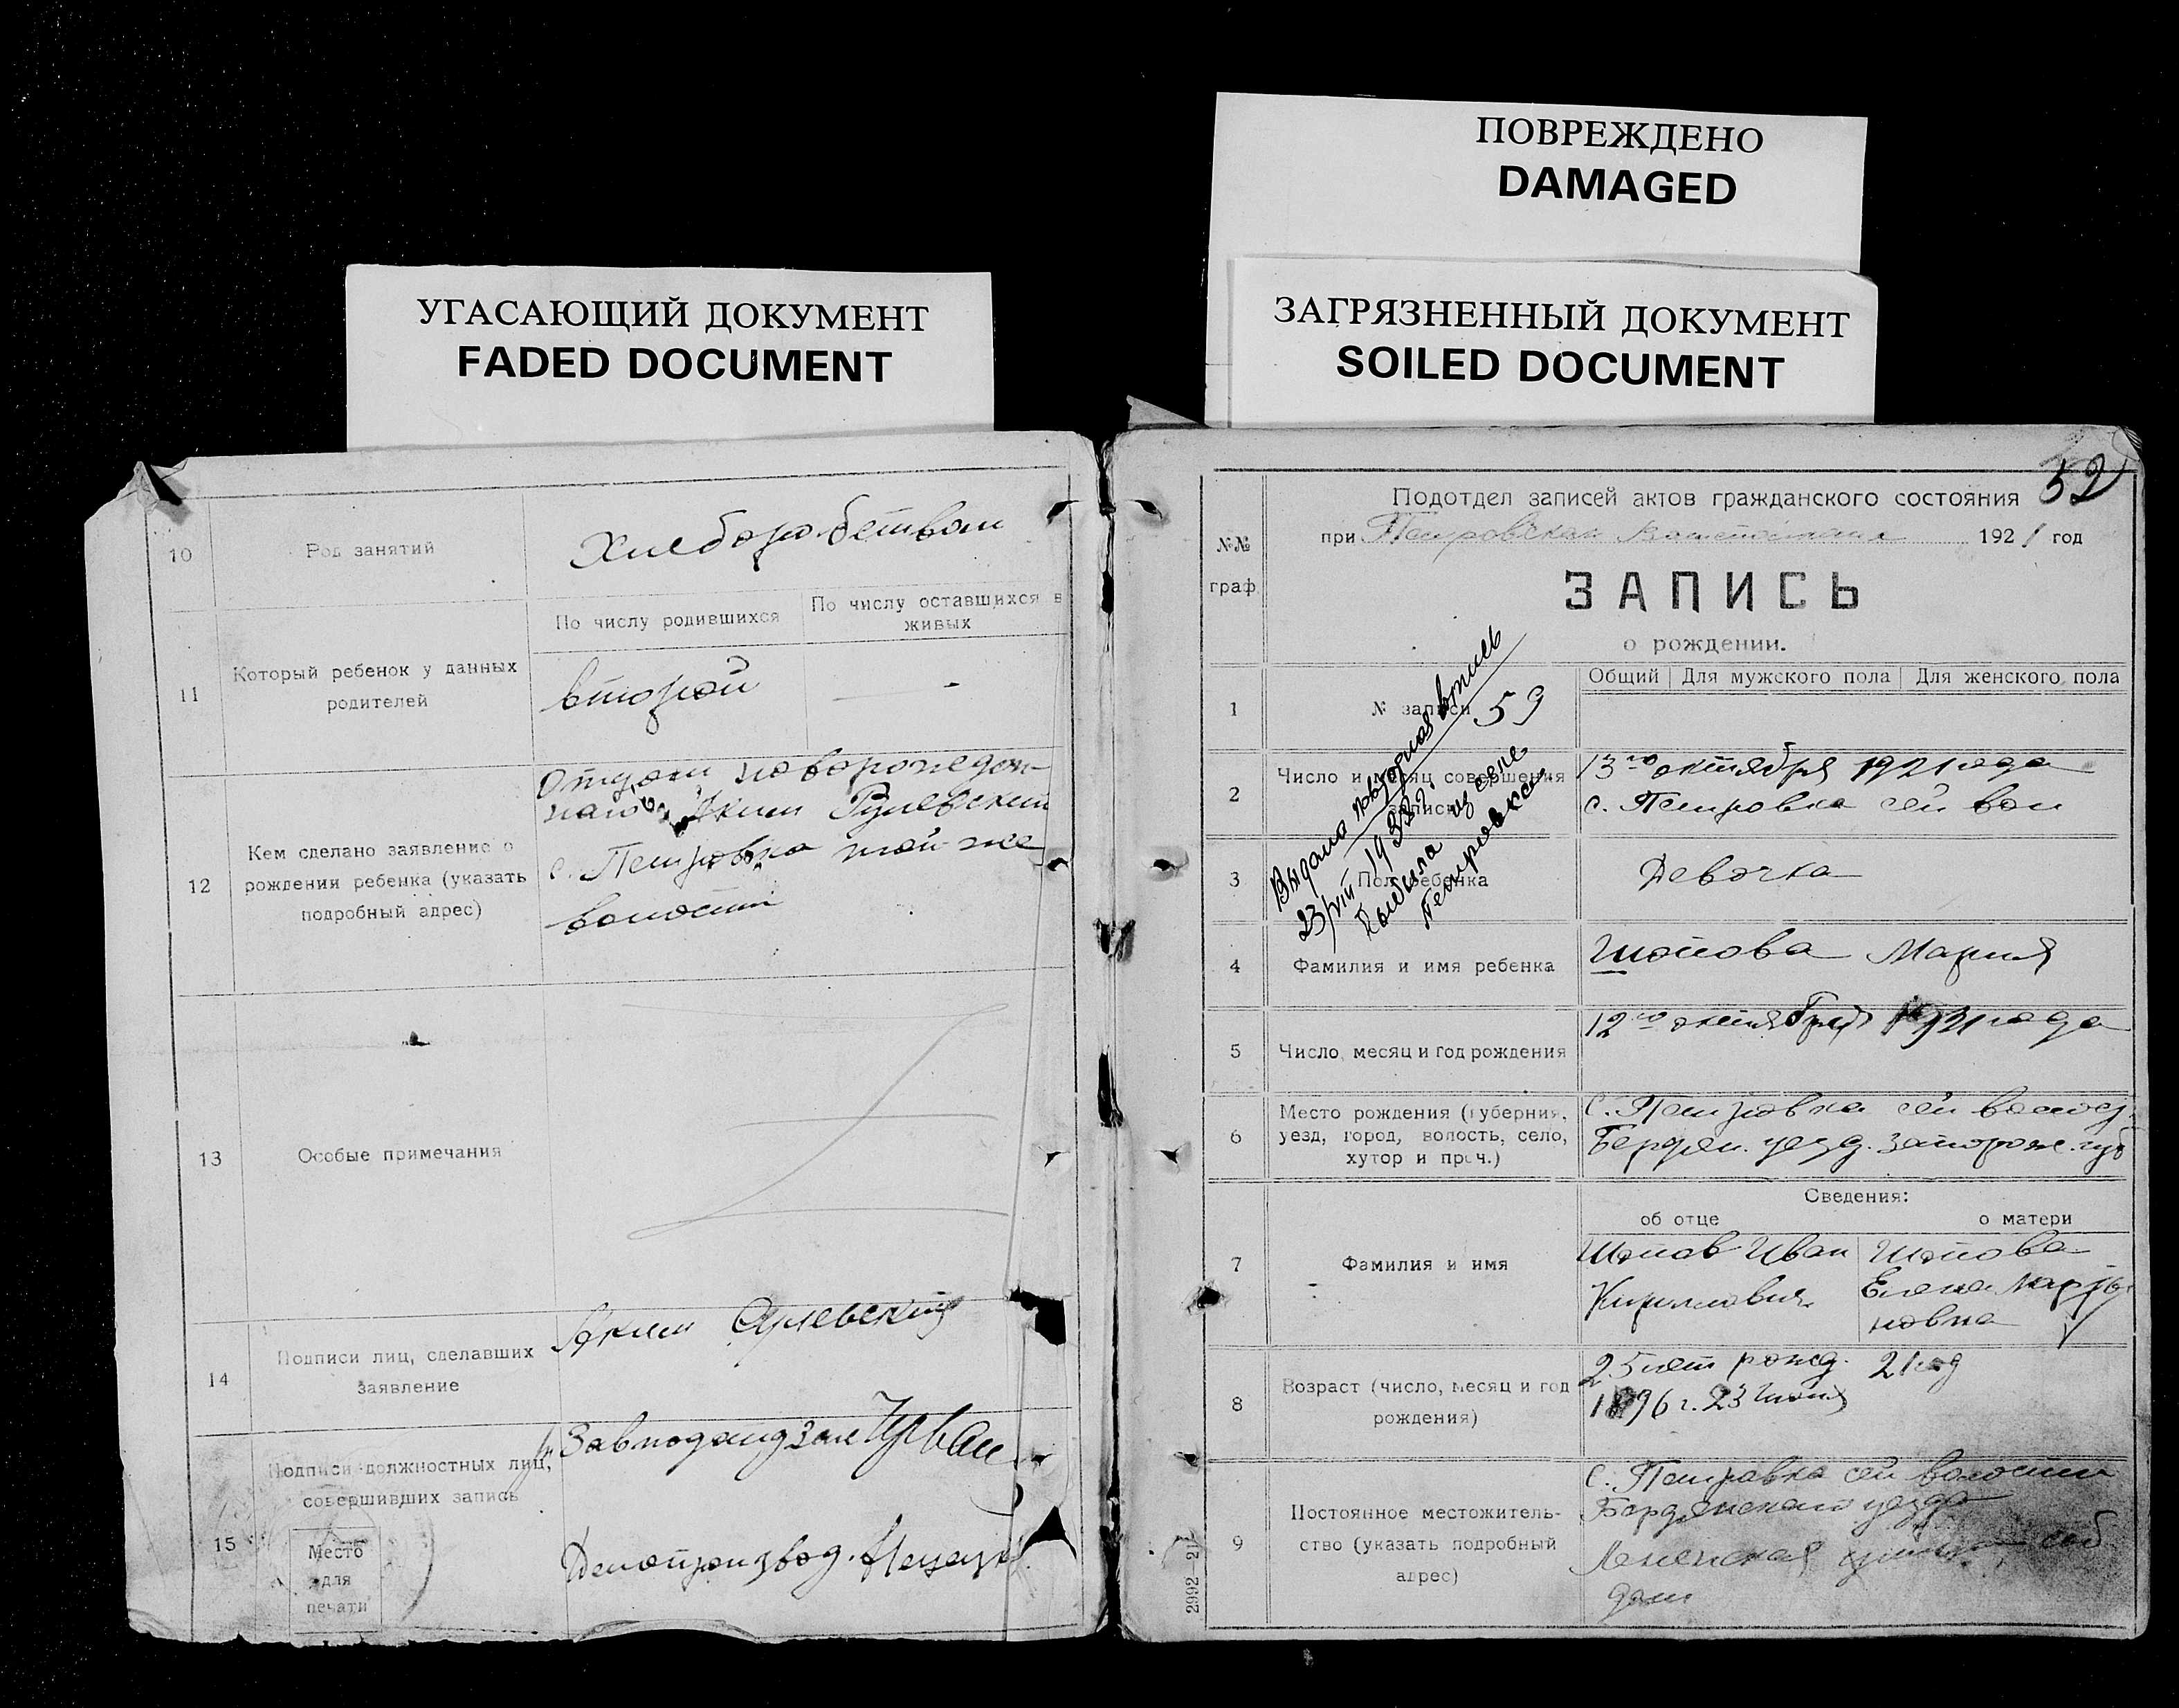 ПОВРЕЖДЕНО
DAMAGED
УГАСАЮЩИЙ ДОКУМЕНТ
FADED DOCUMENT
ЗАГРЯЗНЕННЫЙ ДОКУМЕНТ
SOILED DOCUMENT
10
Род занятий
Хлеборобством
11
Который ребенок у данных
родителей
По числу родившихся
По числу оставшихся в
живых
второй
—
12
Кем сделано заявление о
рождения ребенка (указать
подробный адрес)
Отцом новорожден-
наго Аким
с. Петровка той-же
волости
13
Особые примечания
14
Подписи лиц, сделавших
заявление
Аким
15
Подписи должностных лиц,
совершивших запись
Место
для
печати
Делопроизвод.
52
№№
граф.
Подотдел записей актов гражданского состояния
при Петровском 1921 год
ЗАПИСЬ
о рождении.
Общий Для мужского пола Для женского пола
1
№ записи 59
Выдана повторная выпись
23/VIII 1933 г.
Выбыла из села
Петровка
2
Число и месяц совершения
записи
13го октября 1921 года
с. Петровка сей вол
3
Пол ребенка
Девочка
4
Фамилия и имя ребенка
Шопова Мария
5
Число, месяц и год рождения
12го октября 1921 года
6
Место рождения (губерния,
уезд, город, волость, село,
хутор и проч.)
С. Петровка сей волост.
Бердян. уезд. запорож. губ
Сведения:
об отце
о матери
7
Фамилия и имя
Шопов Иван
Кирилович
Шопова
Елена Марты-
новна
8
Возраст (число, месяц и год
рождения)
25 лет рожд.
1896 г. 23
21 год
9
Постоянное местожитель-
ство (указать подробный
адрес)
с. Петровка сей волости
Бердянского уезда
Ленинская соб
дом
2992—21